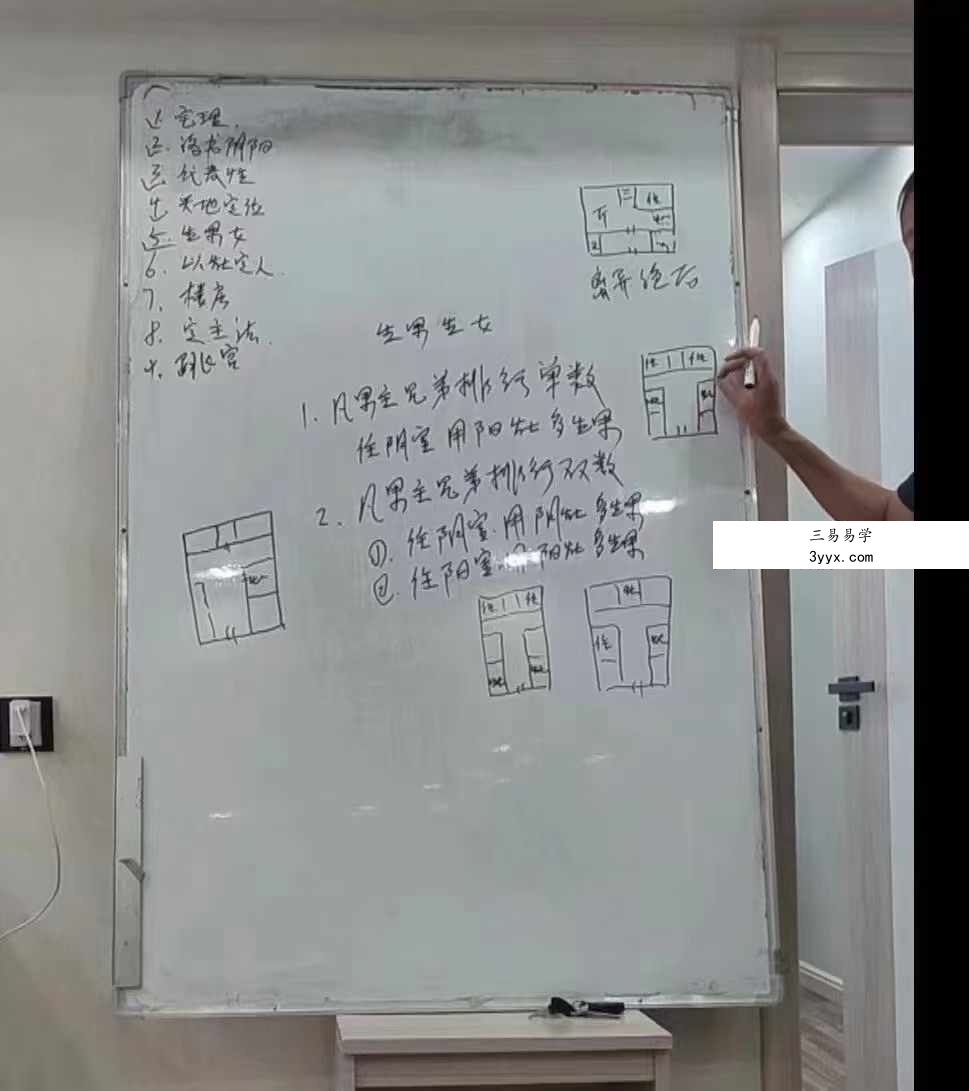 1. 宅理.
2. 洛书阴阳
3. 代表性
4. 天地定位
5. 生男女
6. 以灶定人.
7. 楼房
8. 定主法.
9. 跳宫
离异绝后
生男生女
1. 凡男主兄弟排行单数
住阴室用阳灶多生男
2. 凡男主兄弟排行双数
①. 住阴室.用阴灶多生男
②. 住阳室.用阳灶多生男
住
住 住
灶
灶
住 住
灶 灶
灶
住 灶
三易易学
3yyx.com